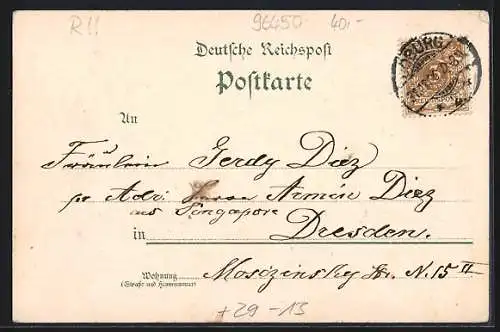 R!!
96450 40.-
Deutsche Reichspost
Postkarte
An
Fräulein Gerdy Diez
pr Adr. Herrn Armin Diez
aus Singapore
in Dresden.
Wohnung Mosczinsky Str. N. 15 II
(Straße und Hausnummer)
+29 -13